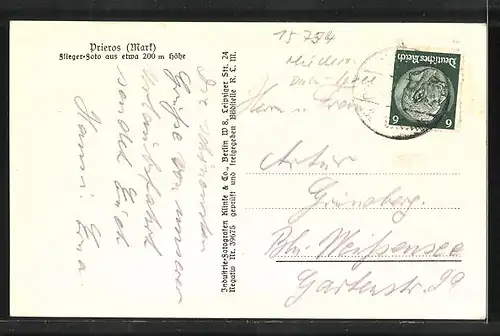 Prieros (Mark)
Flieger-Foto aus etwa 200 m Höhe
Die schönsten
Grüße von unserer
Urlaubsfahrt
sendet Euch
Hanni. Erna.
Industrie-Fotografen Klinke & Co., Berlin W 8, Leipziger Str. 24
Negativ Nr. 39675 geprüft und freigegeben Bildstelle R. L. M.
15 794
Deutsches Reich
6 6
Herrn u. Frau
Artur
Grüneberg.
Bln. Weißensee
Gartenstr. 29